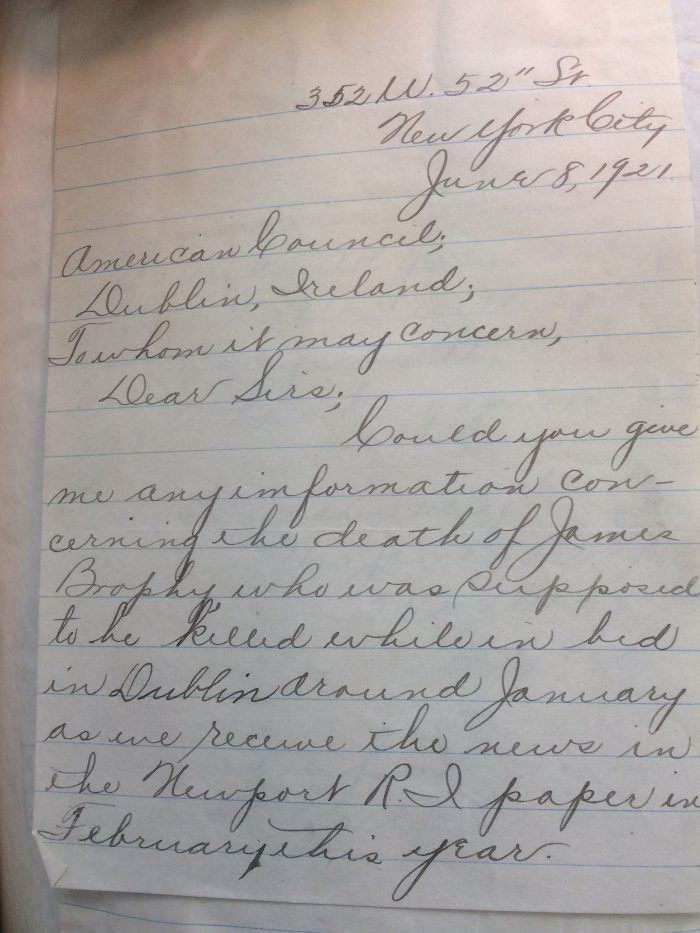 352 W. 52" St.
New York City
June 8, 1921.
American Council;
Dublin, Ireland;
To whom it may concern,
Dear Sirs;
Could you give
me any imformation con-
cerning the death of James
Brophy who was supposed
to be killed while in bed
in Dublin around January
as we receive the news in
the Newport R. I paper in
February, this year.